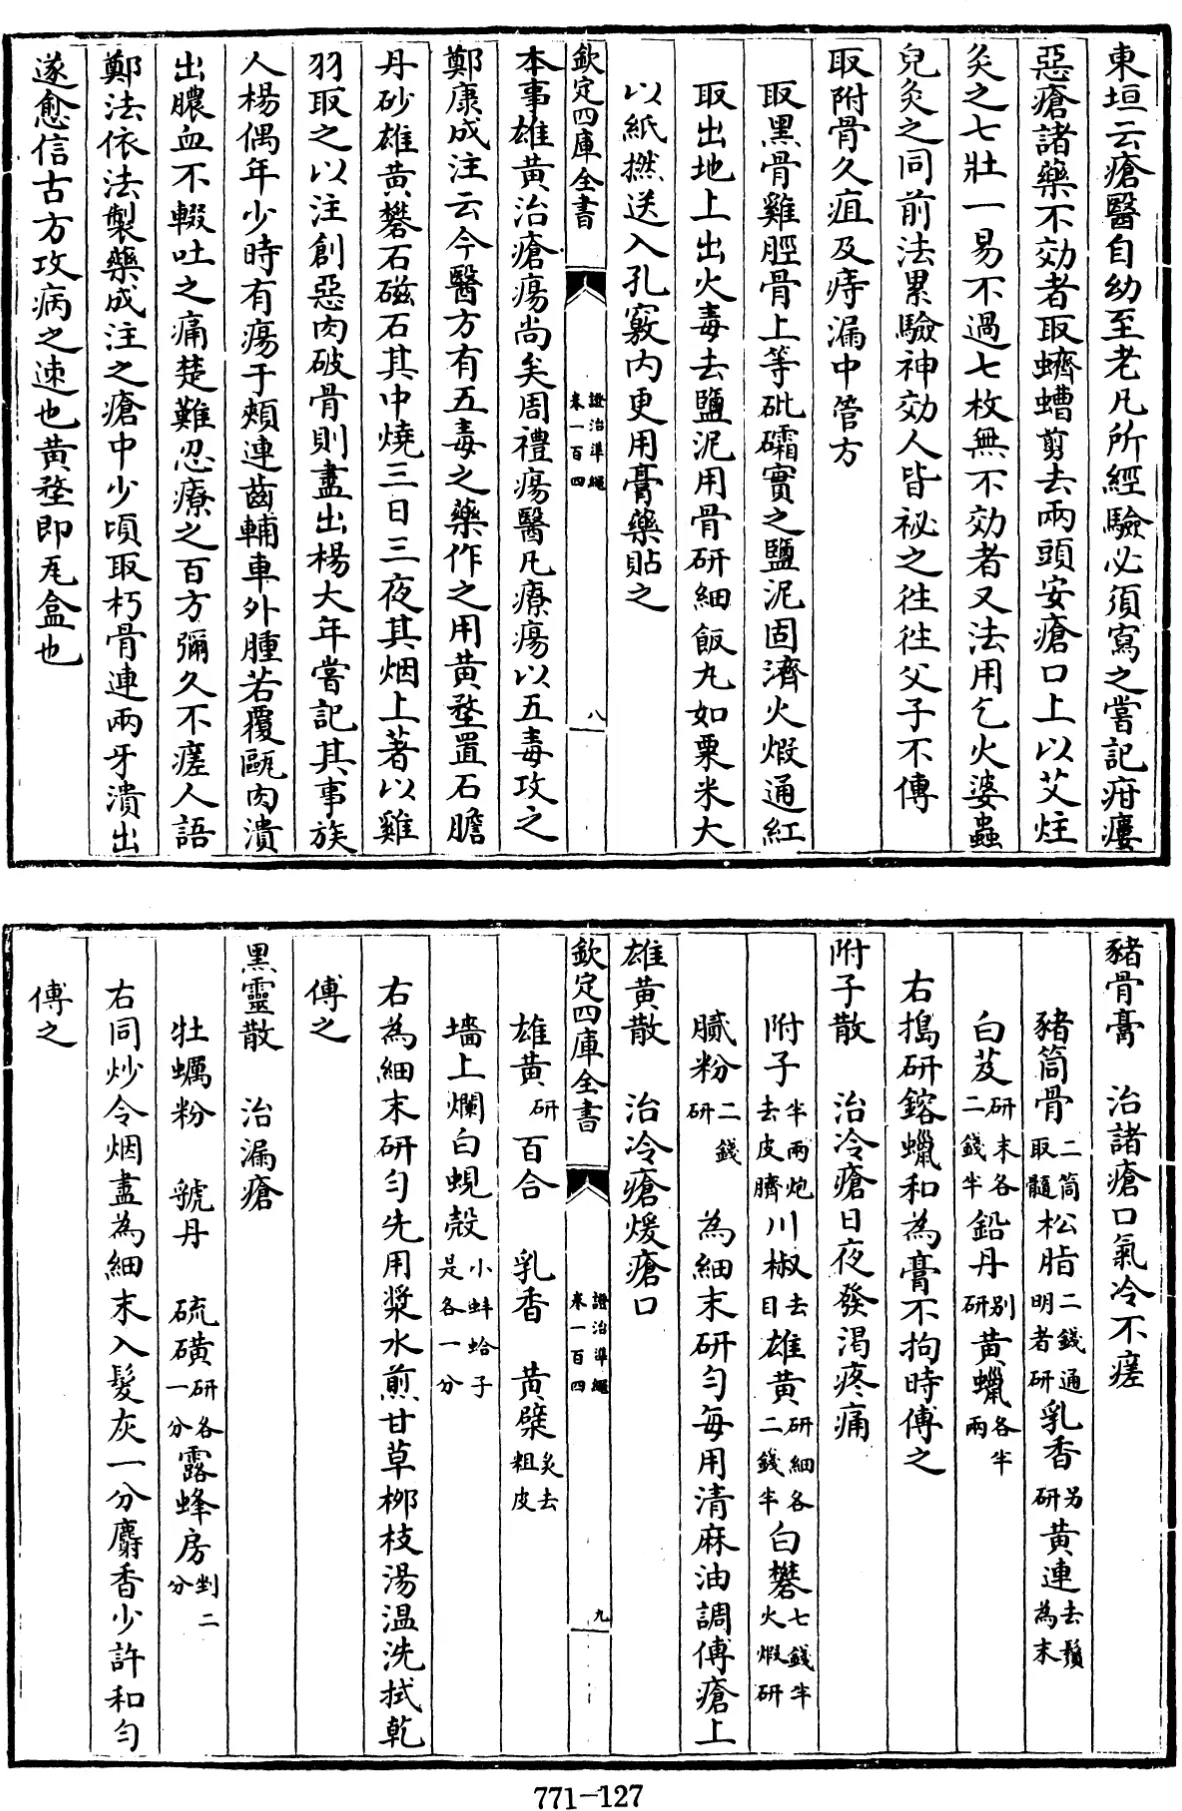 東垣云瘡醫自幼至老凡所經驗必須寫之嘗記疳瘻
惡瘡諸藥不効者取蠐螬剪去兩頭安瘡口上以艾炷
灸之七壯一易不過七枚無不効者又法用乞火婆蟲
兒灸之同前法累驗神効人皆祕之徃徃父子不傳
取附骨久疽及痔漏中管方
取黑骨雞脛骨上等砒礵實之鹽泥固濟火煅通紅
取出地上出火毒去鹽泥用骨研細飯丸如粟米大
以紙撚送入孔竅内更用膏藥貼之
欽定四庫全書
證治準繩
卷一百四
八
本事雄黃治瘡瘍尚矣周禮瘍醫凡療瘍以五毒攻之
鄭康成注云今醫方有五毒之藥作之用黃堥置石膽
丹砂雄黃礬石磁石其中燒三日三夜其烟上著以雞
羽取之以注創惡肉破骨則盡出楊大年嘗記其事族
人楊偶年少時有瘍于頰連齒輔車外腫若覆甌肉潰
出膿血不輟吐之痛楚難忍療之百方彌久不瘥人語
鄭法依法製藥成注之瘡中少頃取朽骨連兩牙潰出
遂愈信古方攻病之速也黃堥即瓦盒也
豬骨膏　治諸瘡口氣冷不瘥
豬筒骨二筒取髓松脂二錢通明者研乳香另研黃連去鬚為末
白芨研末各二錢半鉛丹别研黃蠟各半兩
右搗研鎔蠟和為膏不拘時傅之
附子散　治冷瘡日夜發渴疼痛
附子半兩炮去皮臍川椒去目雄黃研細各二錢半白礬七錢半火煅研
膩粉二錢研　為細末研勻每用清麻油調傅瘡上
雄黃散　治冷瘡煖瘡口
欽定四庫全書
證治準繩
卷一百四
九
雄黃研百合　乳香　黃檗炙去粗皮
墻上爛白蜆殼小蚌蛤子是各一分
右為細末研勻先用漿水煎甘草栁枝湯温洗拭乾
傅之
黑靈散　治漏瘡
牡蠣粉　虢丹　硫磺研各一分露蜂房剉二分
右同炒令烟盡為細末入髮灰一分麝香少許和勻
傅之
771-127